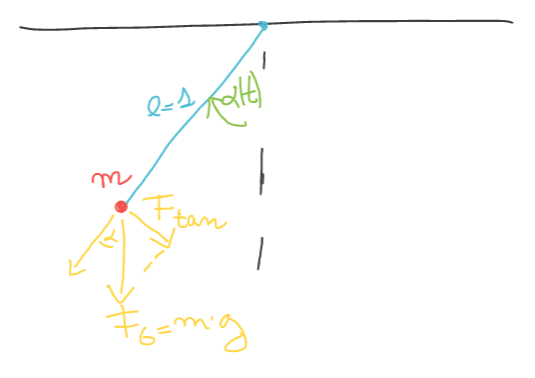 l=1
α(t)
m
F_tan
α
F_G=m·g